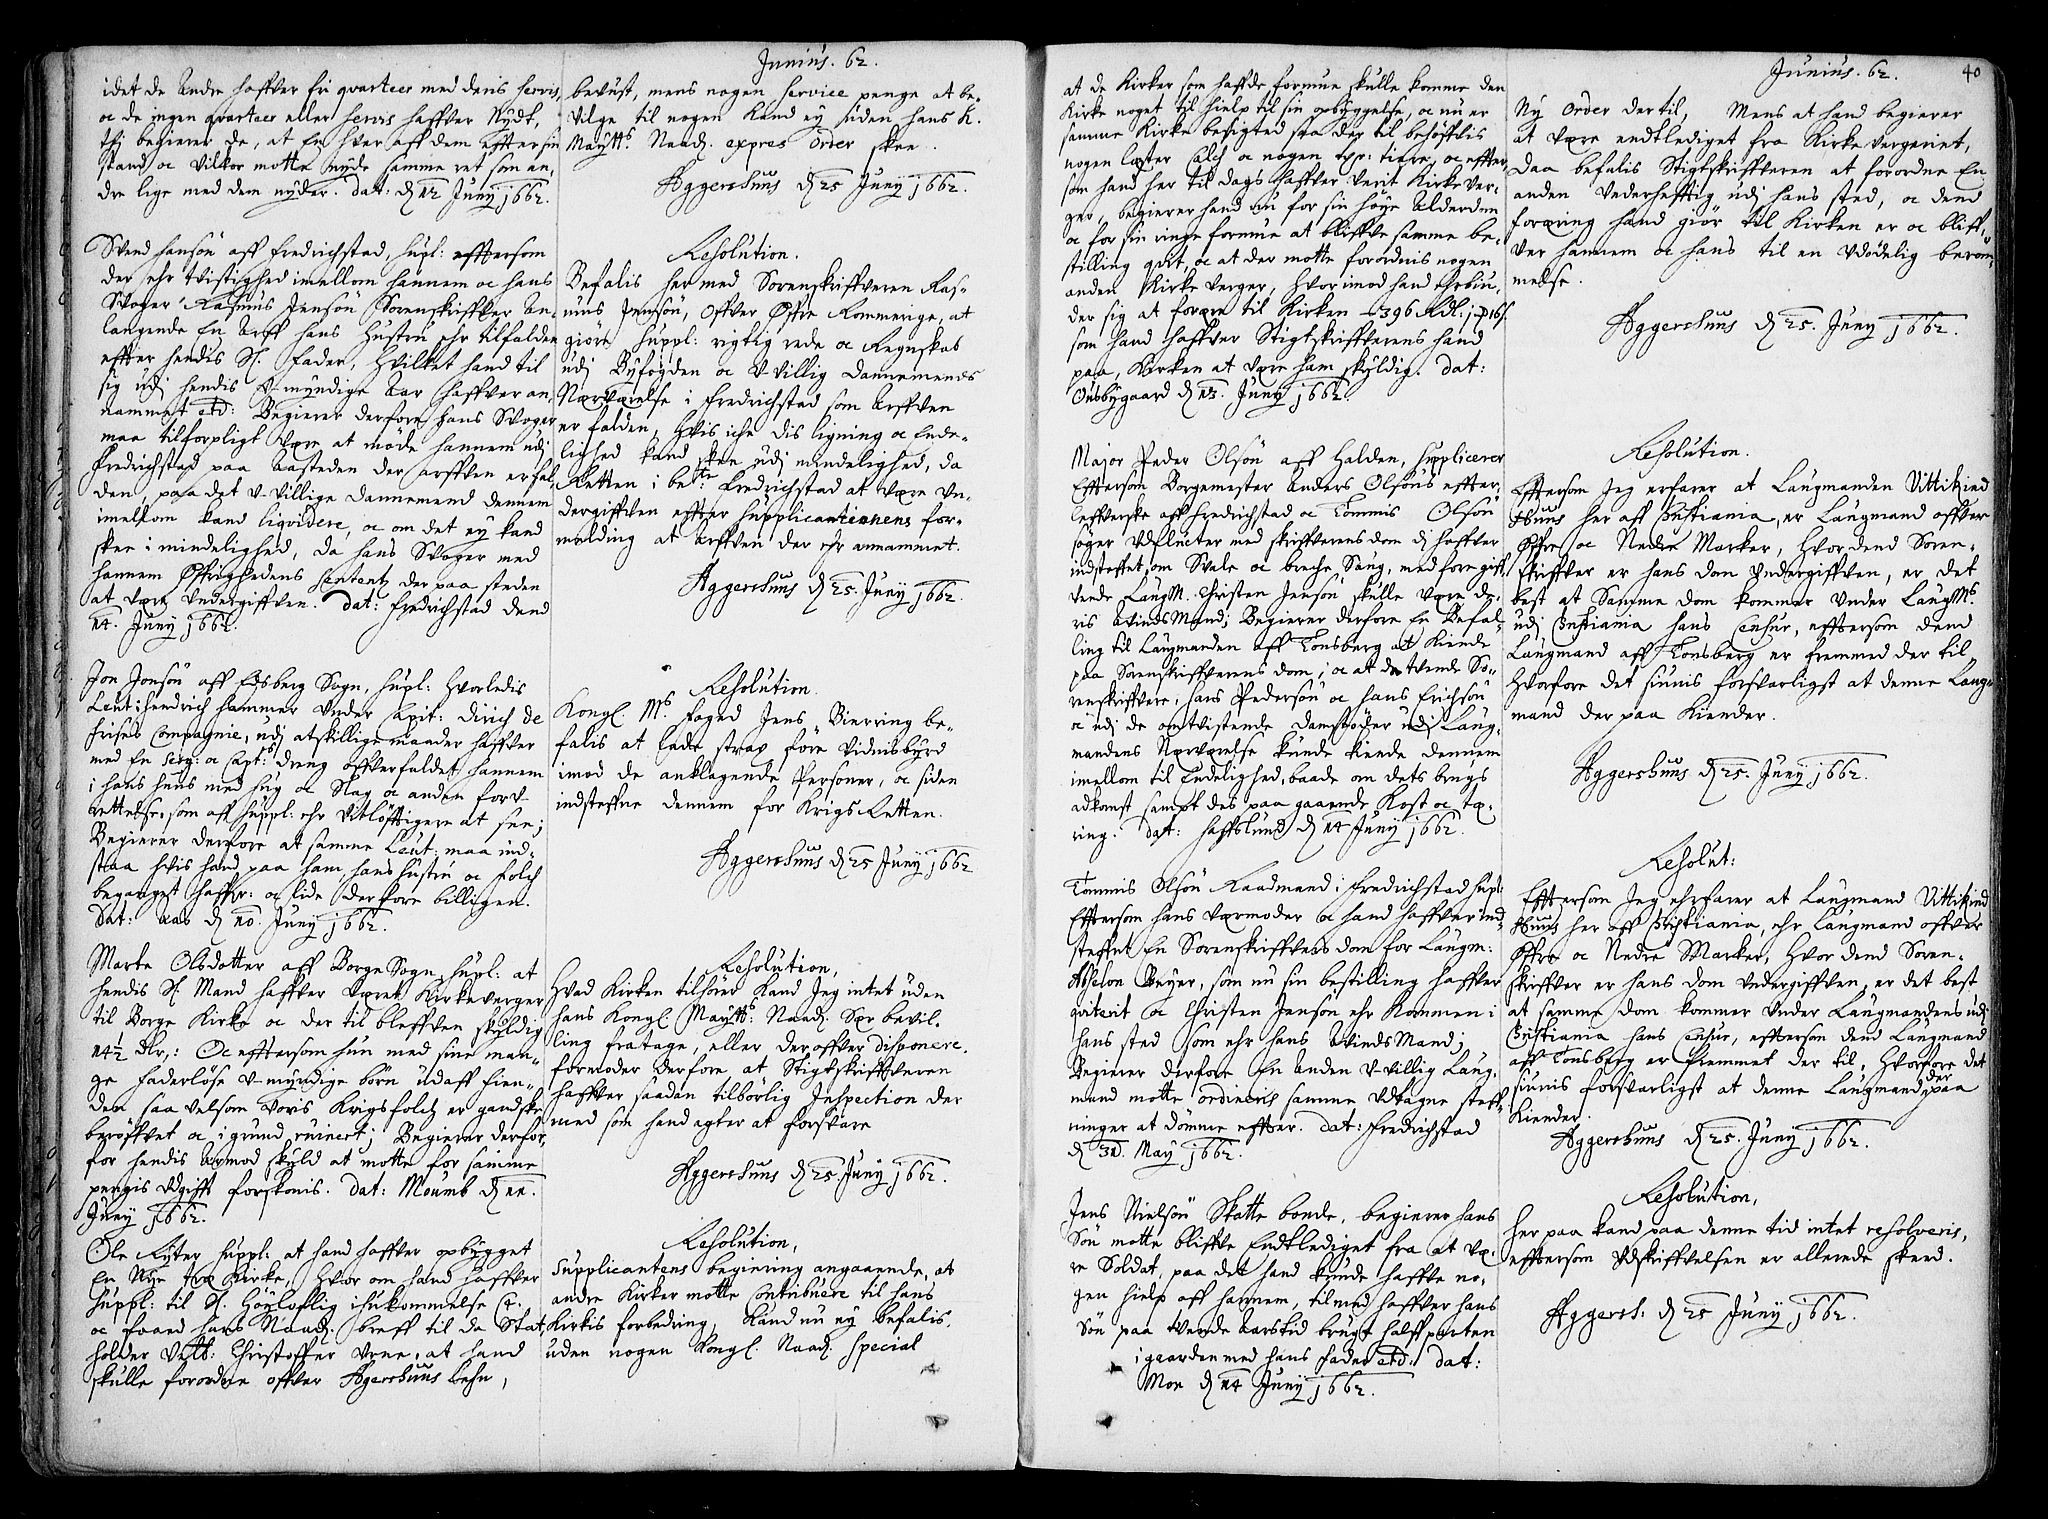 Junius. 62.
idet de andre haffver fri qvarteer med deris servis,
oc de ingen qvarteer eller servis haffver Nydt,
thj begierer de, at En hver aff dem effter sin
stand oc vilkor motte nyde samme ret som an,
dre lige med dem nyder. dat: d 12 Junij 1662.
Svend hansøn aff fredrichstad, supl: efftersom
der ehr tvistighed imellom hannem oc hans
Svoger Rasmus Jensøn Sorenskriffver an-
langende En arff hans Hustru ehr tilfalden
effter hendis Sl. fader, hvilket hand til
sig udj hendis U-myndige Aar haffver an,
nammet etc: Begierer derfore hans Svoger
maa tilforpligt være at møde hannem udj
fredrichstad paa aasteden der arffven er fal,
den, paa det U-villige dannemend dennem
imellom kand liqvidere, oc om det ey kand
skee i mindelighed, da hans Svoger med
hannem Øffrighedens sententz der paa steden
at være Undergiffven. dat: fredrichstad dend
14. Junij 1662.
Jon Jonsøn aff Edsberg Sogn, supl: hvorledis
Leut: hendrich hammer under Capit: dirich de
frises Compagnie, udj atskillige maader haffver
med En serg: oc Capt:s dreng offverfaldet hannem
i hans huus med hug oc Slag oc anden forr-
rettelse, som aff suppl: ehr vitløfftigere at see;
Begierer derfore at samme Leut: maa ind-
staa hvis hand paa ham, hans hustru oc folch
begaaget haffver: oc lide derfore billigen.
dat: Aas d 10. Junij 1662.
Marte Olsdatter aff Borge Sogn, supl: at
hendis Sl. Mand haffver været Kirkeverger
til Borge Kirke oc der til bleffven skyldig
14½ dlr,: Oc efftersom hun med sine man-
ge faderløse U-myndige børn udaff fien-
den saa velsom voris Krigsfolch er gandske
berøffvet oc i grund ruinert; Begierer derfor,
for hendis armod skyld at motte for samme
pengis udgifft forskonis. dat: Moumb d 11.
Junij 1662.
Ole Ryter suppl: at hand haffver opbygget
En Nye Træ Kirke, hvor om hand haffver
suppl: til Sl. Høyloflig ihukommelse C4.
oc faaed hans Naad. breff til da Stat,
holder Velb: Christoffer Urne, at hand
skulle forordne offver Agershuus Lehn,
bevust, mens nogen service penge at be-
vilge til nogen kand ey uden hans K.
Maytts. Naad. expres order skee.
Aggershuus d 25 Junij 1662.
Resolution.
Befalis hermed Sorenskriffveren Ras-
mus Jensøn, offver Øffre Rommerige, at
giøre suppl: rigtig rede oc Regnskab
udj Byfogden oc U-villig Dannemends
Nærværelse i fredrichstad som arffven
er falden, hvis iche dis ligning oc Ende-
lighed kand skee udj mindelighed, da
Retten i bete fredrichstad at være Un-
dergiffven effter supplicantinnens for-
melding at arffven der ehr annammet.
Aggershuus d 25 Junij 1662.
Resolution.
Kongl. Ms. foged Jens Bierring be-
falis at lade strax føre vidnisbyrd
imod de anklagende Personer, oc siden
indsteffne dennem for Krigs Retten.
Aggershuus d 25 Junij 1662
Resolution,
Hvad Kirken tilhører kand Jeg intet uden
hans Kongl. Maytts: Naad. Sær bevil-
ling fratage, eller deroffver disponere.
formoder derfore, at Stigtskriffveren
haffver saadan tilbørlig Inspection der
med som hand agter at forsvare
Aggershuus d 25 Junij 1662.
Resolution,
Supplicantens begiering angaaende, at
andre Kirker motte Contribuere til hans
Kirkis forbedring, kand nu ey befalis,
uden nogen Kongl. Naad. special
Junius. 62.
40
at de Kirker som haffde formue skulle komme den
Kirke noget til hielp til sin opbyggelse, oc nu er
samme Kirke besigted saa der til behøffvis
nogen læster Calch oc nogen tiere, oc effter,
som hand her til dags haffver verit Kirkever-
ger, begierer hand nu for sin høye Alderdom
oc for sin ringe formue at bliffve samme be-
stilling qvit, oc at der motte forordnis nogen
anden Kirkeverger, hvorimod hand ehrbiu,
der sig at foræere til Kirken 396 Rdl: 1 16 s.
som hand haffver Stigtskriffverens hand
paa, Kirken at være ham skyldig. dat:
Ousbygaard d 13. Junij 1662.
Major Peder Olsøn aff Halden, supplicerer
Efftersom Borgemester Anders Olsøns effter-
leffverske aff fredrichstad oc Tommis Olsøn
søger udflucter med skriffverens dom di haffver
indsteffnet, om Svale oc breche Seng, med foregiff,
vende LaugM. Christen Jensøn skulle være de-
ris avinds Mand; Begierer derfore En Befal-
ling til Laugmanden aff Tonsberg at Kiende
paa Sorenskriffverens dom; oc at de tvende So-
renskriffvere, hans Pedersøn oc hans Erichsøn
oc udj de omtvistende damstøcher udj Laug-
mandens Nærværelse kunde kiende dennem
imellom til Endelighed, baade om dets brugs
adkomst sampt des paa gaaende Kost oc tæ-
ring. dat: haffslund d 14 Junij 1662.
Tommis Olsøn Raadmand i fredrichstad supl:
Efftersom hans værmoder oc hand haffver ind-
steffnet En Sorenskriffvers dom for Laugm:
Abselon Beyer, som nu sin bestilling haffver
qviterit oc Christen Jensøn ehr Kommen i
hans sted som ehr hans avinds Mand;
Begierer derfore En anden U-villig Laug-
mand motte ordineris samme udtagne steff-
ninger at dømme effter. dat: fredrichstad
d 31. May 1662.
Jens Nielsøn Skatte bonde, begierer hans
Søn motte bliffve Endtlediget fra at væ-
re Soldat, paa det hand kunde haffve no,
gen hielp aff hannem, tilmed haffver hans
Søn paa tvende Aarstid brugt halffparten
i gaarden med hans fader etc: dat:
Mor d 14 Junij 1662.
Ny order dertil, Mens at hand begierer
at være endtlediget fra Kirke vergeriet,
daa befalis Stigtskriffveren at forordne En
anden vederhefftig udj hans sted, oc dend
foræring hand giør til Kirken er oc bliff,
ver hannem oc hans til en udødelig beröm,
melse.
Aggershuus d 25. Junij 1662.
Resolution.
Efftersom Jeg erfarer at Laugmanden Vittikind
Huus her aff Christiania, er Laugmand offver
Øffre oc Nedre Marker, hvor dend Soren-
skriffver er hans dom Undergiffven, er det
best at Samme dom kommer Under LaugMs.
udj Christiania hans Censur, efftersom dend
Laugmand aff Tonsberg er fremmed der til
hvorfore det siunis forsvarligst at denne Laug-
mand der paa Kiender.
Aggershuus d 25. Junij 1662.
Resolut:
Efftersom Jeg ehrfarer at Laugmand Vittikind
Huus her aff Christiania, ehr Laugmand offver
Øffre oc Nedre Marker, hvor dend Soren-
skriffver er hans dom Undergiffven, er det best
at samme dom kommer Under Laugmandens udj
Christiania hans Censur, efftersom dend Laugmand
aff Tonsberg er fremmet der til, hvorfore det
siunis forsvarligst at denne Laugmand der paa
Kiender.
Aggershuus d 25. Junij 1662.
Resolution,
her paa kand paa denne tid intet resolveris,
efftersom Udskriffvelsen er allerede skeed.
Aggersh: d 25 Junij 1662.